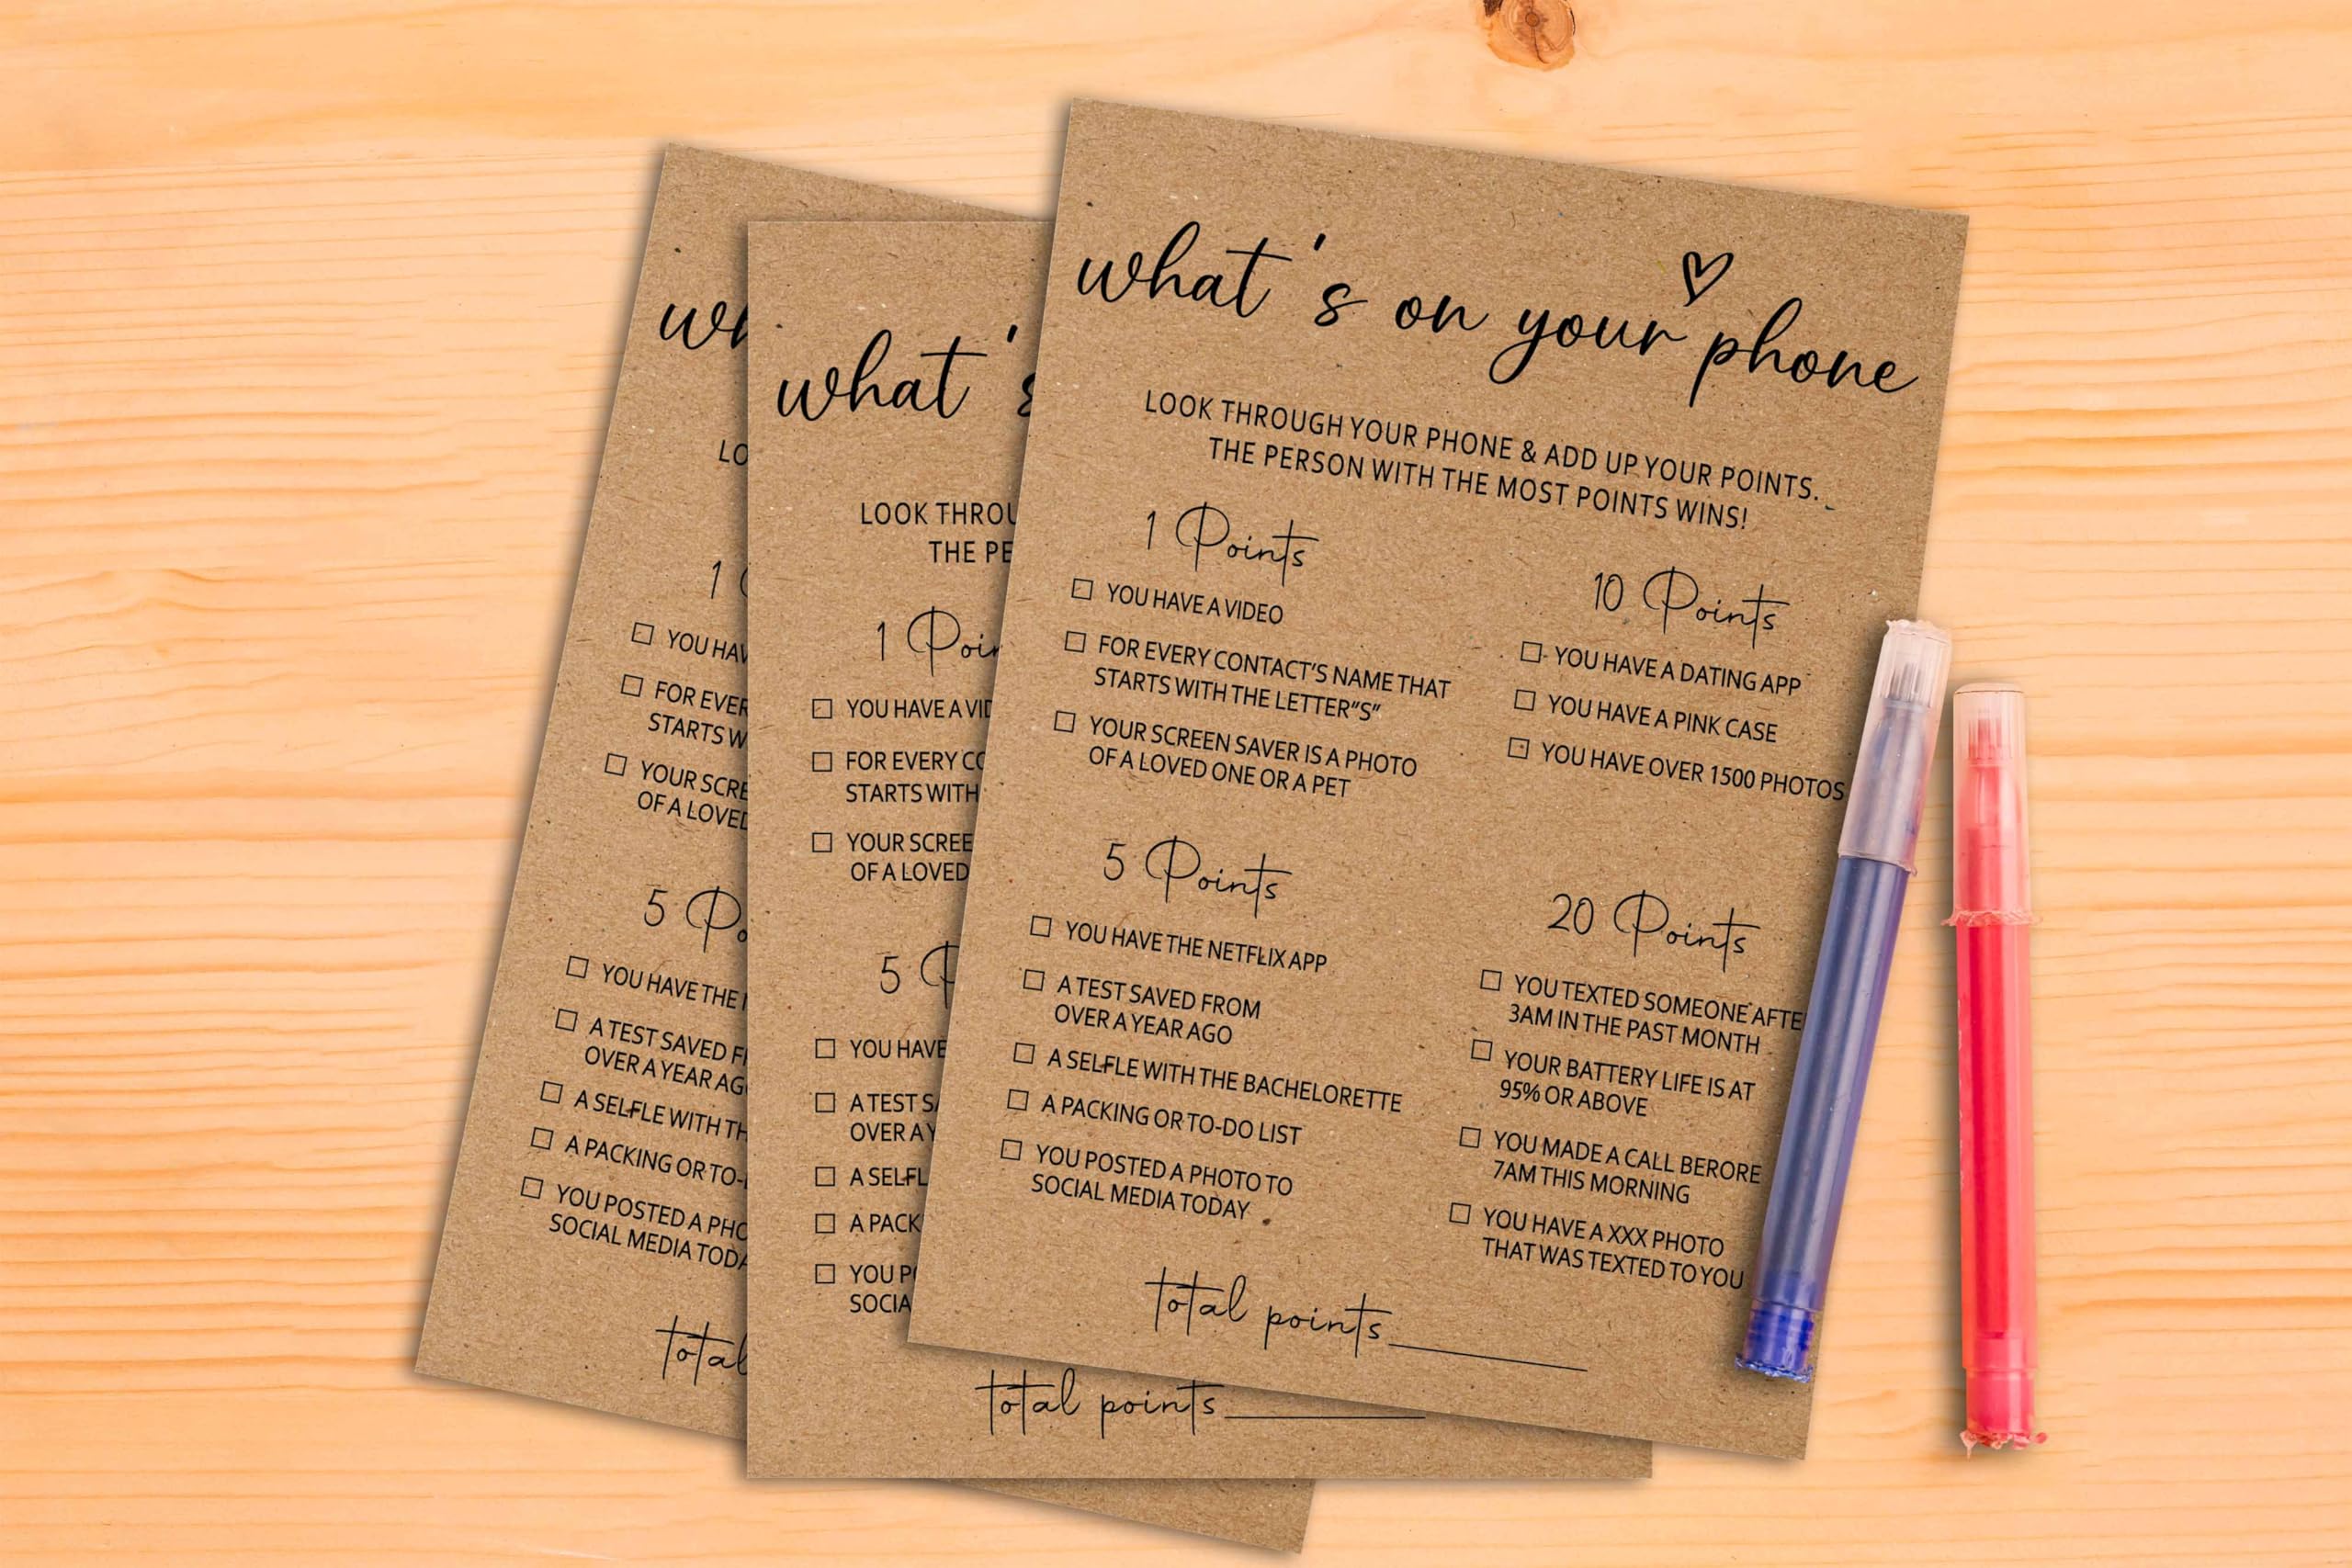 wh
LO
1
YOU HAV
FOR EVER
STARTS W
YOUR SCRE
OF A LOVED
5 Po
YOU HAVE THE
A TEST SAVED F
OVER A YEAR AG
A SELFLE WITH TH
A PACKING OR TO-
YOU POSTED A PHO
SOCIAL MEDIA TODA
total
what 's
LOOK THROU
THE PE
1 Poin
YOU HAVE A VID
FOR EVERY CO
STARTS WITH
YOUR SCREE
OF A LOVED
5 P
YOU HAVE
A TEST SA
OVER A Y
A SELFL
A PACK
YOU P
SOCIA
total points
what 's on your phone
LOOK THROUGH YOUR PHONE & ADD UP YOUR POINTS.
THE PERSON WITH THE MOST POINTS WINS!
1 Points
YOU HAVE A VIDEO
FOR EVERY CONTACT'S NAME THAT
STARTS WITH THE LETTER"S"
YOUR SCREEN SAVER IS A PHOTO
OF A LOVED ONE OR A PET
5 Points
YOU HAVE THE NETFLIX APP
A TEST SAVED FROM
OVER A YEAR AGO
A SELFLE WITH THE BACHELORETTE
A PACKING OR TO-DO LIST
YOU POSTED A PHOTO TO
SOCIAL MEDIA TODAY
10 Points
YOU HAVE A DATING APP
YOU HAVE A PINK CASE
YOU HAVE OVER 1500 PHOTOS
20 Points
YOU TEXTED SOMEONE AFTE
3AM IN THE PAST MONTH
YOUR BATTERY LIFE IS AT
95% OR ABOVE
YOU MADE A CALL BERORE
7AM THIS MORNING
YOU HAVE A XXX PHOTO
THAT WAS TEXTED TO YOU
total points